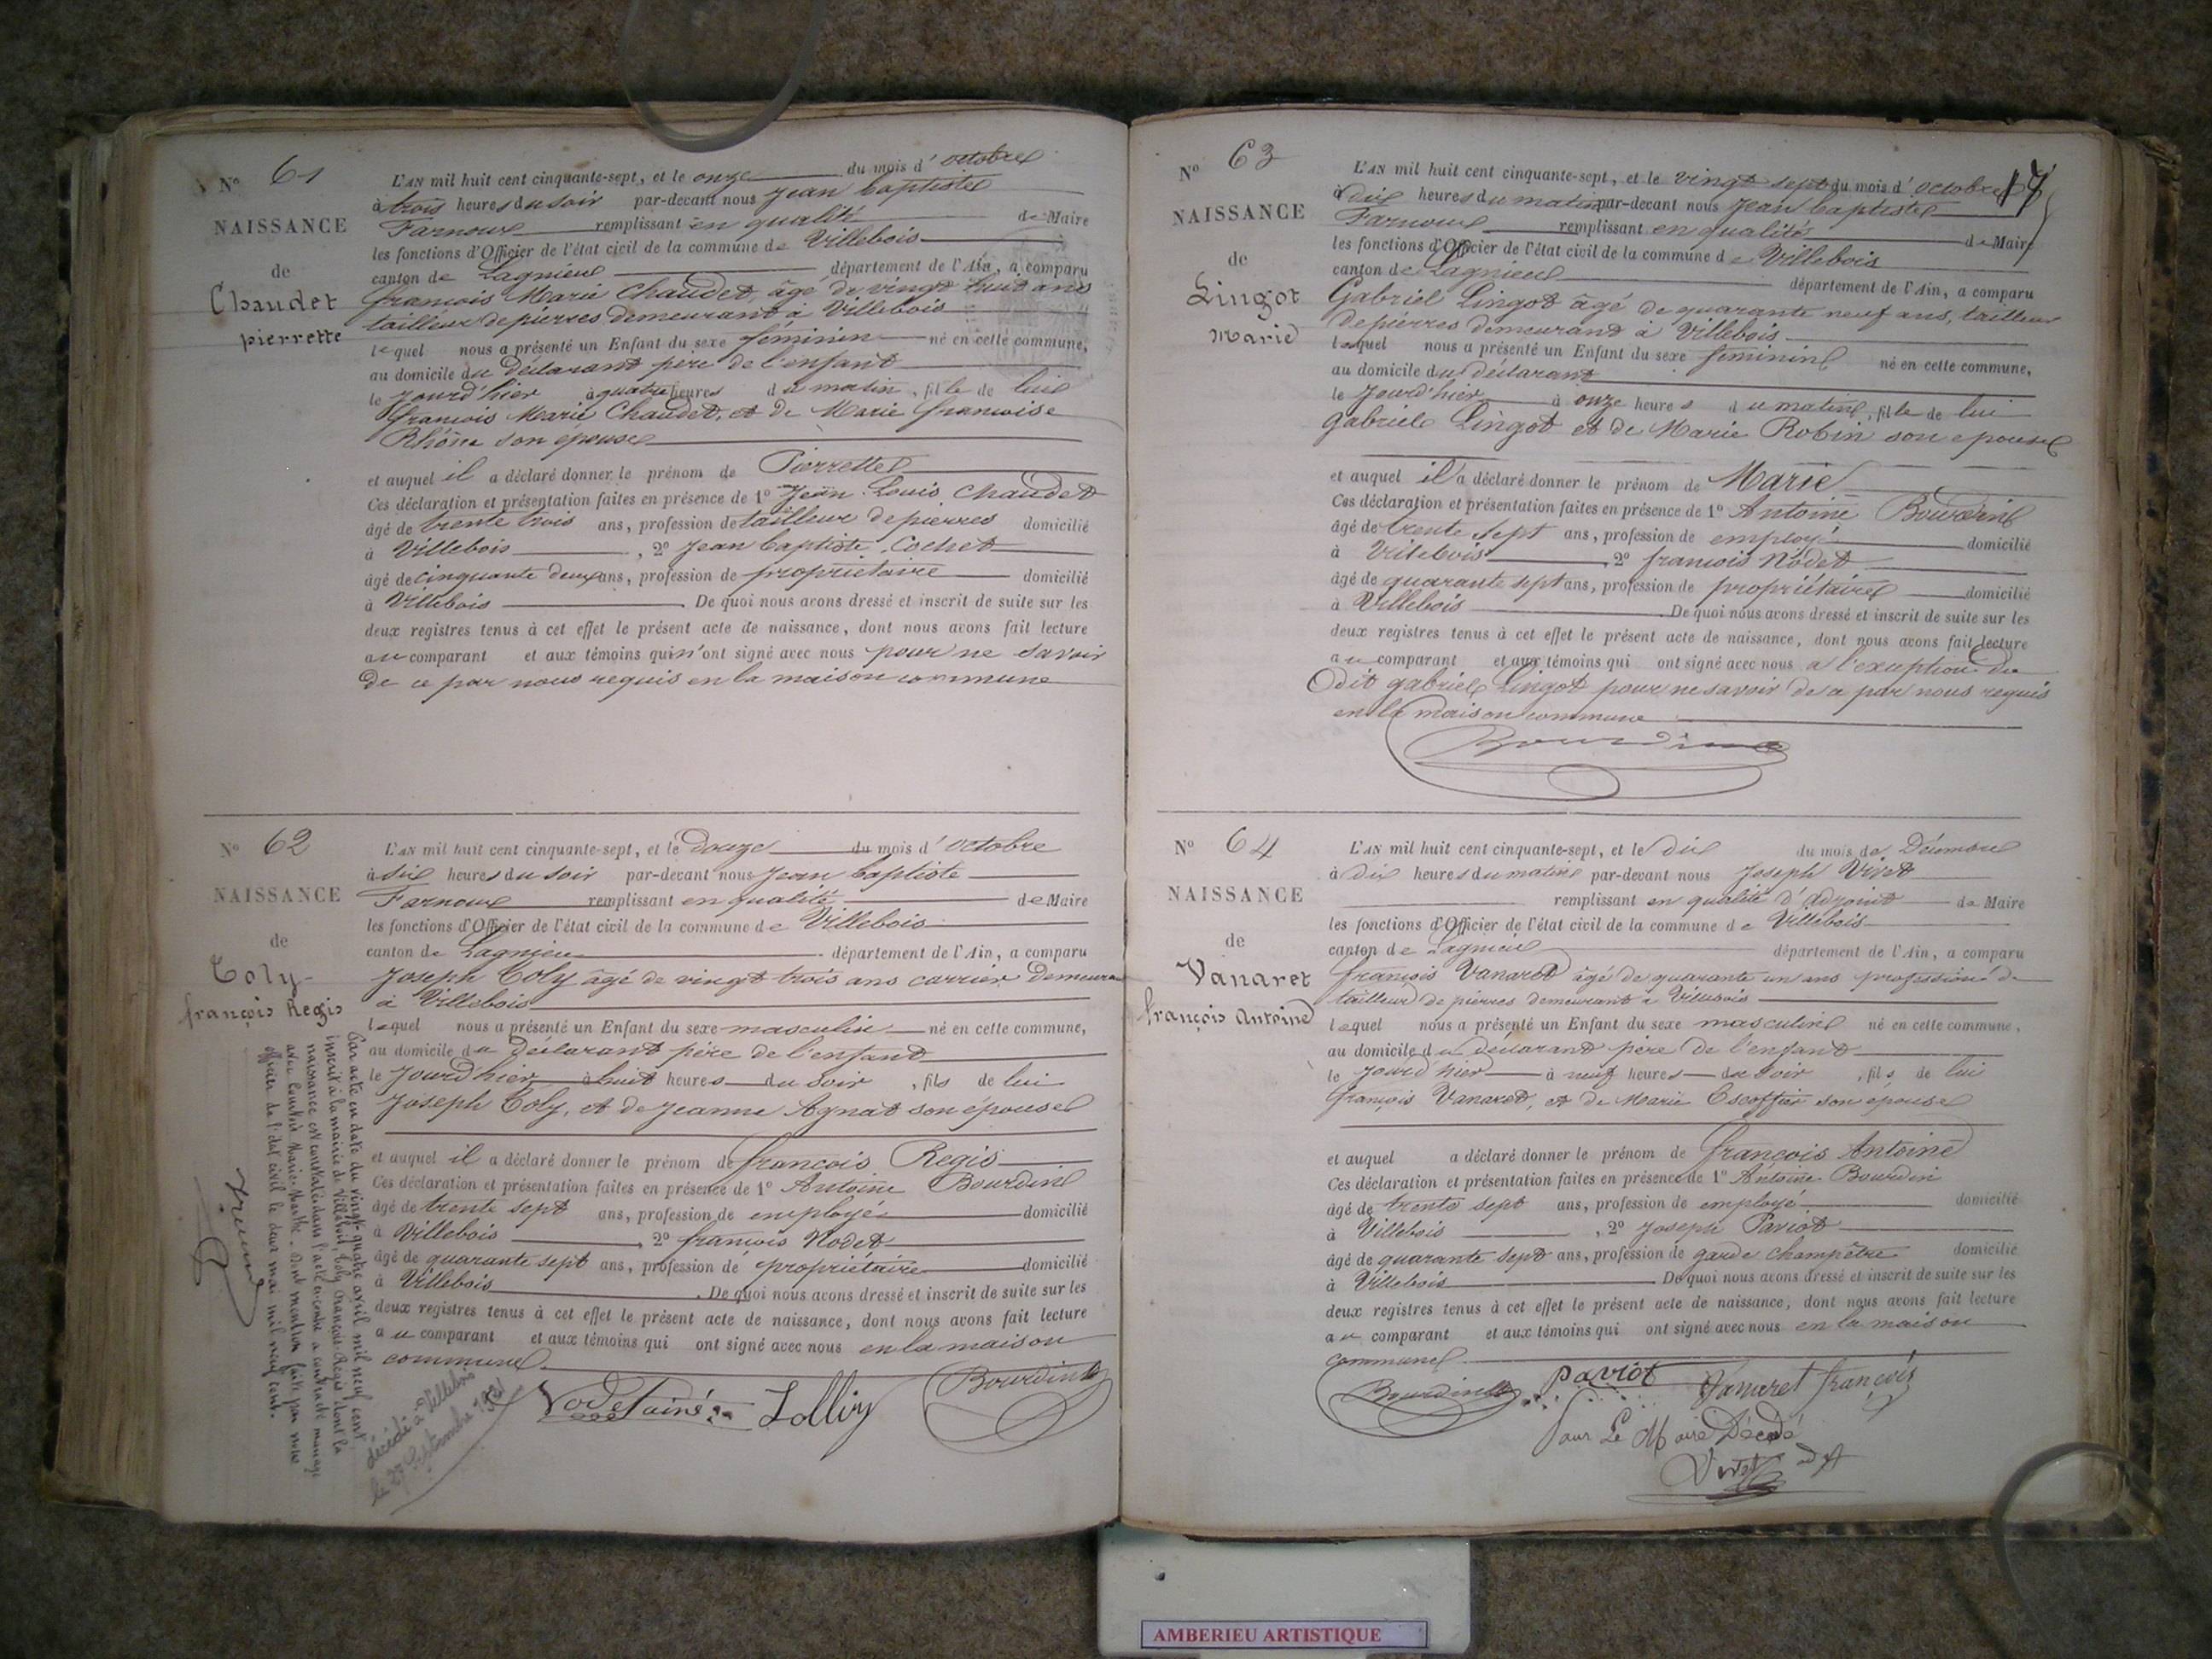 Nº 61
NAISSANCE
de
Chaudet
pierrette
L'AN mil huit cent cinquante-sept, et le onze du mois d'octobre
à trois heures du soir par-devant nous Jean baptiste
Farnoux remplissant en qualité de Maire
les fonctions d'Officier de l'état civil de la commune de Villebois
canton de Lagnieu département de l'Ain, a comparu
francois Marie Chaudet, âgé de vingt huit ans
tailleur de pierres demeurant à Villebois
lequel nous a présenté un Enfant du sexe féminin né en cette commune,
au domicile du déclarant père de l'enfant
le jourd'hier à quatre heures du matin, fille de lui
francois Marie Chaudet, et de Marie francoise
Rhône son épouse
et auquel il a déclaré donner le prénom de Pierrette
Ces déclaration et présentation faites en présence de 1º Jean Louis Chaudet
âgé de trente trois ans, profession de tailleur de pierres domicilié
à Villebois, 2º Jean baptiste Cochet
âgé de cinquante deux ans, profession de propriétaire domicilié
à Villebois. De quoi nous avons dressé et inscrit de suite sur les
deux registres tenus à cet effet le présent acte de naissance, dont nous avons fait lecture
au comparant et aux témoins qui n'ont signé avec nous pour ne savoir
de ce par nous requis en la maison commune
Nº 62
NAISSANCE
de
Toly
françois Regis
L'AN mil huit cent cinquante-sept, et le douze du mois d'octobre
à six heures du soir par-devant nous Jean baptiste
Farnoux remplissant en qualité de Maire
les fonctions d'Officier de l'état civil de la commune de Villebois
canton de Lagnieu département de l'Ain, a comparu
Joseph Toly âgé de vingt trois ans carrier demeurant
à Villebois
lequel nous a présenté un Enfant du sexe masculin né en cette commune,
au domicile du déclarant père de l'enfant
le jourd'hier à huit heures du soir, fils de lui
Joseph Toly, et de Jeanne Agnat son épouse
et auquel il a déclaré donner le prénom de francois Regis
Ces déclaration et présentation faites en présence de 1º Antoine Bourdin
âgé de trente sept ans, profession de employé domicilié
à Villebois, 2º francois Nodet
âgé de quarante sept ans, profession de propriétaire domicilié
à Villebois. De quoi nous avons dressé et inscrit de suite sur les
deux registres tenus à cet effet le présent acte de naissance, dont nous avons fait lecture
au comparant et aux témoins qui ont signé avec nous en la maison
commune
Par acte en date du vingt-quatre avril mil neuf cent,
inscrit à la mairie de Villebois, Toly François-Régis dont la
naissance est constatée dans l'acte ci-contre a contracté mariage
avec Marie-Marthe. Dont mention faite par nous
officier de l'état civil le deux mai mil neuf cent.
décédé à Villebois
le 27 Septembre
Nodet ainé Bourdin
Nº 63
NAISSANCE
de
Lingot
Marie
L'AN mil huit cent cinquante-sept, et le vingt sept du mois d'octobre
à dix heures du matin par-devant nous Jean baptiste
Farnoux remplissant en qualité de Maire
les fonctions d'Officier de l'état civil de la commune de Villebois
canton de Lagnieu département de l'Ain, a comparu
Gabriel Lingot âgé de quarante neuf ans, tailleur
de pierres demeurant à Villebois
lequel nous a présenté un Enfant du sexe feminin né en cette commune,
au domicile du déclarant
le jourd'hier à onze heures du matin, fille de lui
gabriel Lingot et de Marie Robin son epouse
et auquel il a déclaré donner le prénom de Marie
Ces déclaration et présentation faites en présence de 1º Antoine Bourdin
âgé de trente sept ans, profession de employé domicilié
à Villebois, 2º francois Nodet
âgé de quarante sept ans, profession de propriétaire domicilié
à Villebois. De quoi nous avons dressé et inscrit de suite sur les
deux registres tenus à cet effet le présent acte de naissance, dont nous avons fait lecture
au comparant et aux témoins qui ont signé avec nous a l'exeption du
dit gabriel Lingot pour ne savoir de ce par nous requis
en la maison commune
Bourdin
Nº 64
NAISSANCE
de
Vanaret
françois Antoine
L'AN mil huit cent cinquante-sept, et le dix du mois de Décembre
à dix heures du matin par-devant nous Joseph Viret
remplissant en qualité d'adjoint de Maire
les fonctions d'Officier de l'état civil de la commune de Villebois
canton de Lagnieu département de l'Ain, a comparu
françois Vanaret âgé de quarante un ans profession de
tailleur de pierres demeurant à Villebois
lequel nous a présenté un Enfant du sexe masculin né en cette commune,
au domicile du déclarant père de l'enfant
le jourd'hier à neuf heures du soir, fils de lui
françois Vanaret, et de Marie Escoffier son épouse
et auquel a déclaré donner le prénom de françois Antoine
Ces déclaration et présentation faites en présence de 1º Antoine Bourdin
âgé de trente sept ans, profession de employé domicilié
à Villebois, 2º Joseph Paviot
âgé de quarante sept ans, profession de garde champêtre domicilié
à Villebois. De quoi nous avons dressé et inscrit de suite sur les
deux registres tenus à cet effet le présent acte de naissance, dont nous avons fait lecture
au comparant et aux témoins qui ont signé avec nous en la maison
commune
Bourdin Paviot Vanaret françois
Pour Le Maire Décédé
Viret adjt
AMBERIEU ARTISTIQUE